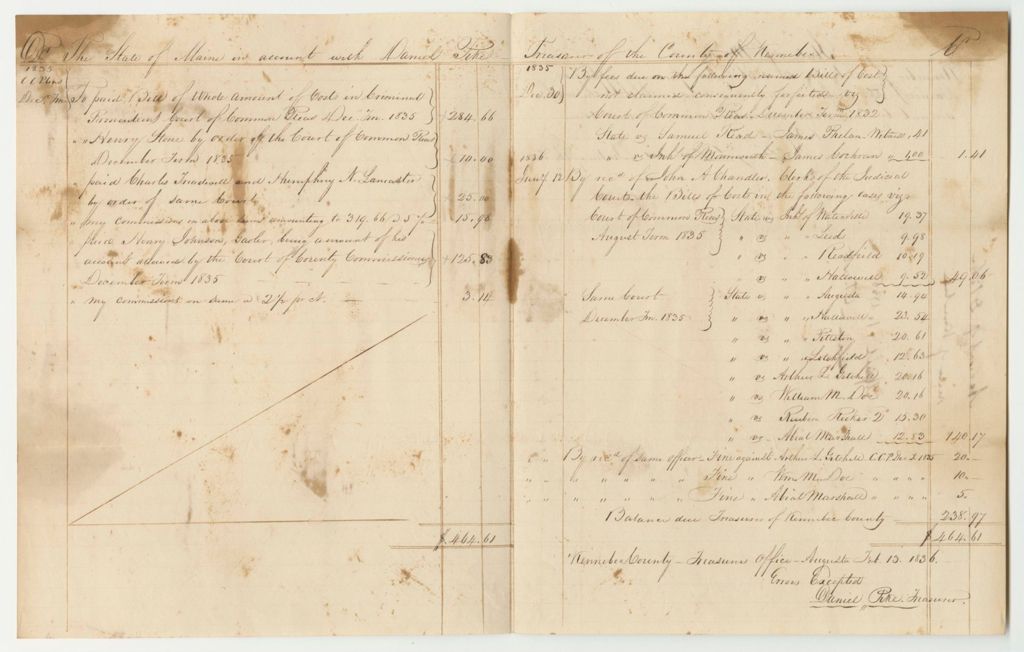 Dr The State of Maine in account with Daniel Pike
1835
C.C. Pleas
Dec. Tm To paid Bill of Whole amount of Costs in Criminal
Prosecutions Court of Common Pleas Dec. Tm. 1835 284.66
" " Henry Stine by order of the Court of Common Pleas
December Term 1835 10.00
" paid Charles Treadwell and Humphrey N. Lancaster
by order of same Court 25.00
" my commission on above sums amounting to 319.66 5 pr 15.98
" paid Henry Johnson, Gaoler, being amount of his
account allowed by the Court of County Commissioners 125.83
December Term 1835
" my commission on same @ 2½ pr Ct. 3.14
$464.61
Treasurer of the County of Kennebec Cr
1835
Dec. 30 By fees due on the following named Bills of Cost
not claimed consequently forfeited viz
Court of Common Pleas December Term 1832
State vs Samuel Head - James Phelan Witness .41
1836 " vs Inhts of Monmouth - James Cochran " 1.00 1.41
Jany 12 By recd of John A Chandler, Clerk of the Judicial
Courts, the Bills of Costs in the following cases viz
Court of Common Pleas State vs Inhts of Waterville 19.37
August Term 1835 " vs " " Leeds 9.98
" vs " " Readfield 10.19
" vs " " Hallowell 9.52 49.06
Same Court State vs " Augusta 14.94
December Tm. 1835 " vs " " Hallowell 23.54
" vs " " Pittston 20.61
" vs " " Litchfield 12.63
" vs Arthur L. Getchell 20.16
" vs William M. Doe 20.16
" vs Reuben Ricker 2d 15.30
" vs Abial Marshall 12.83 140.17
" " By recd of same officer Fine against Arthur L. Getchell C.C.P. Dec. T. 1835 20.-
" " " " " " Fine " Wm M. Doe " " " " 10.-
" " " " " " Fine " Abial Marshall " " " " 5.
Balance due Treasurer of Kennebec County 238.97
$464.61
Kennebec County - Treasurers Office - Augusta Feb. 13. 1836.
Errors Excepted
Daniel Pike Treasurer.